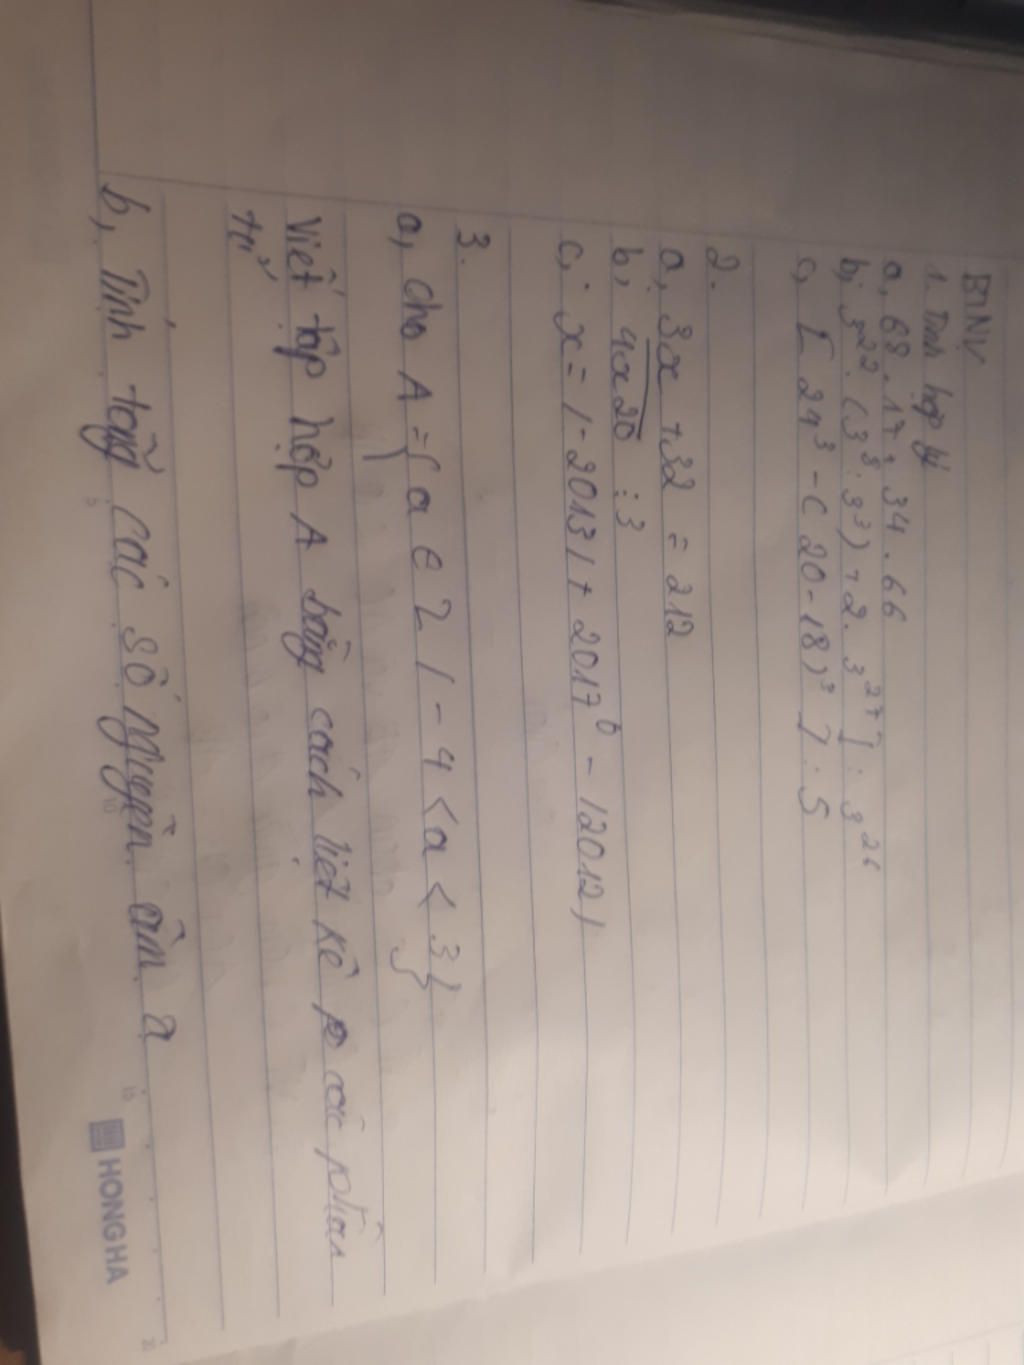 BTNV
1. Tính hợp lý
a, 68.17+34.66
b, 3²². (3⁸:3³)+2.3²⁷]:3²⁶
c, [ 24³-( 20-18)³ ]:5
2.
a, 3x+32 = 212
b, 4x20 ⋮ 3
c, x=|-2013|+ 2017⁰ - |2012|
3.
a, cho A={ a e Z / -4 <a < 3}
Viết tập hợp A bằng cách liệt kê các phần
tử
b, Tính tổng các số nguyên âm a
HONG HA
5
10
15
20